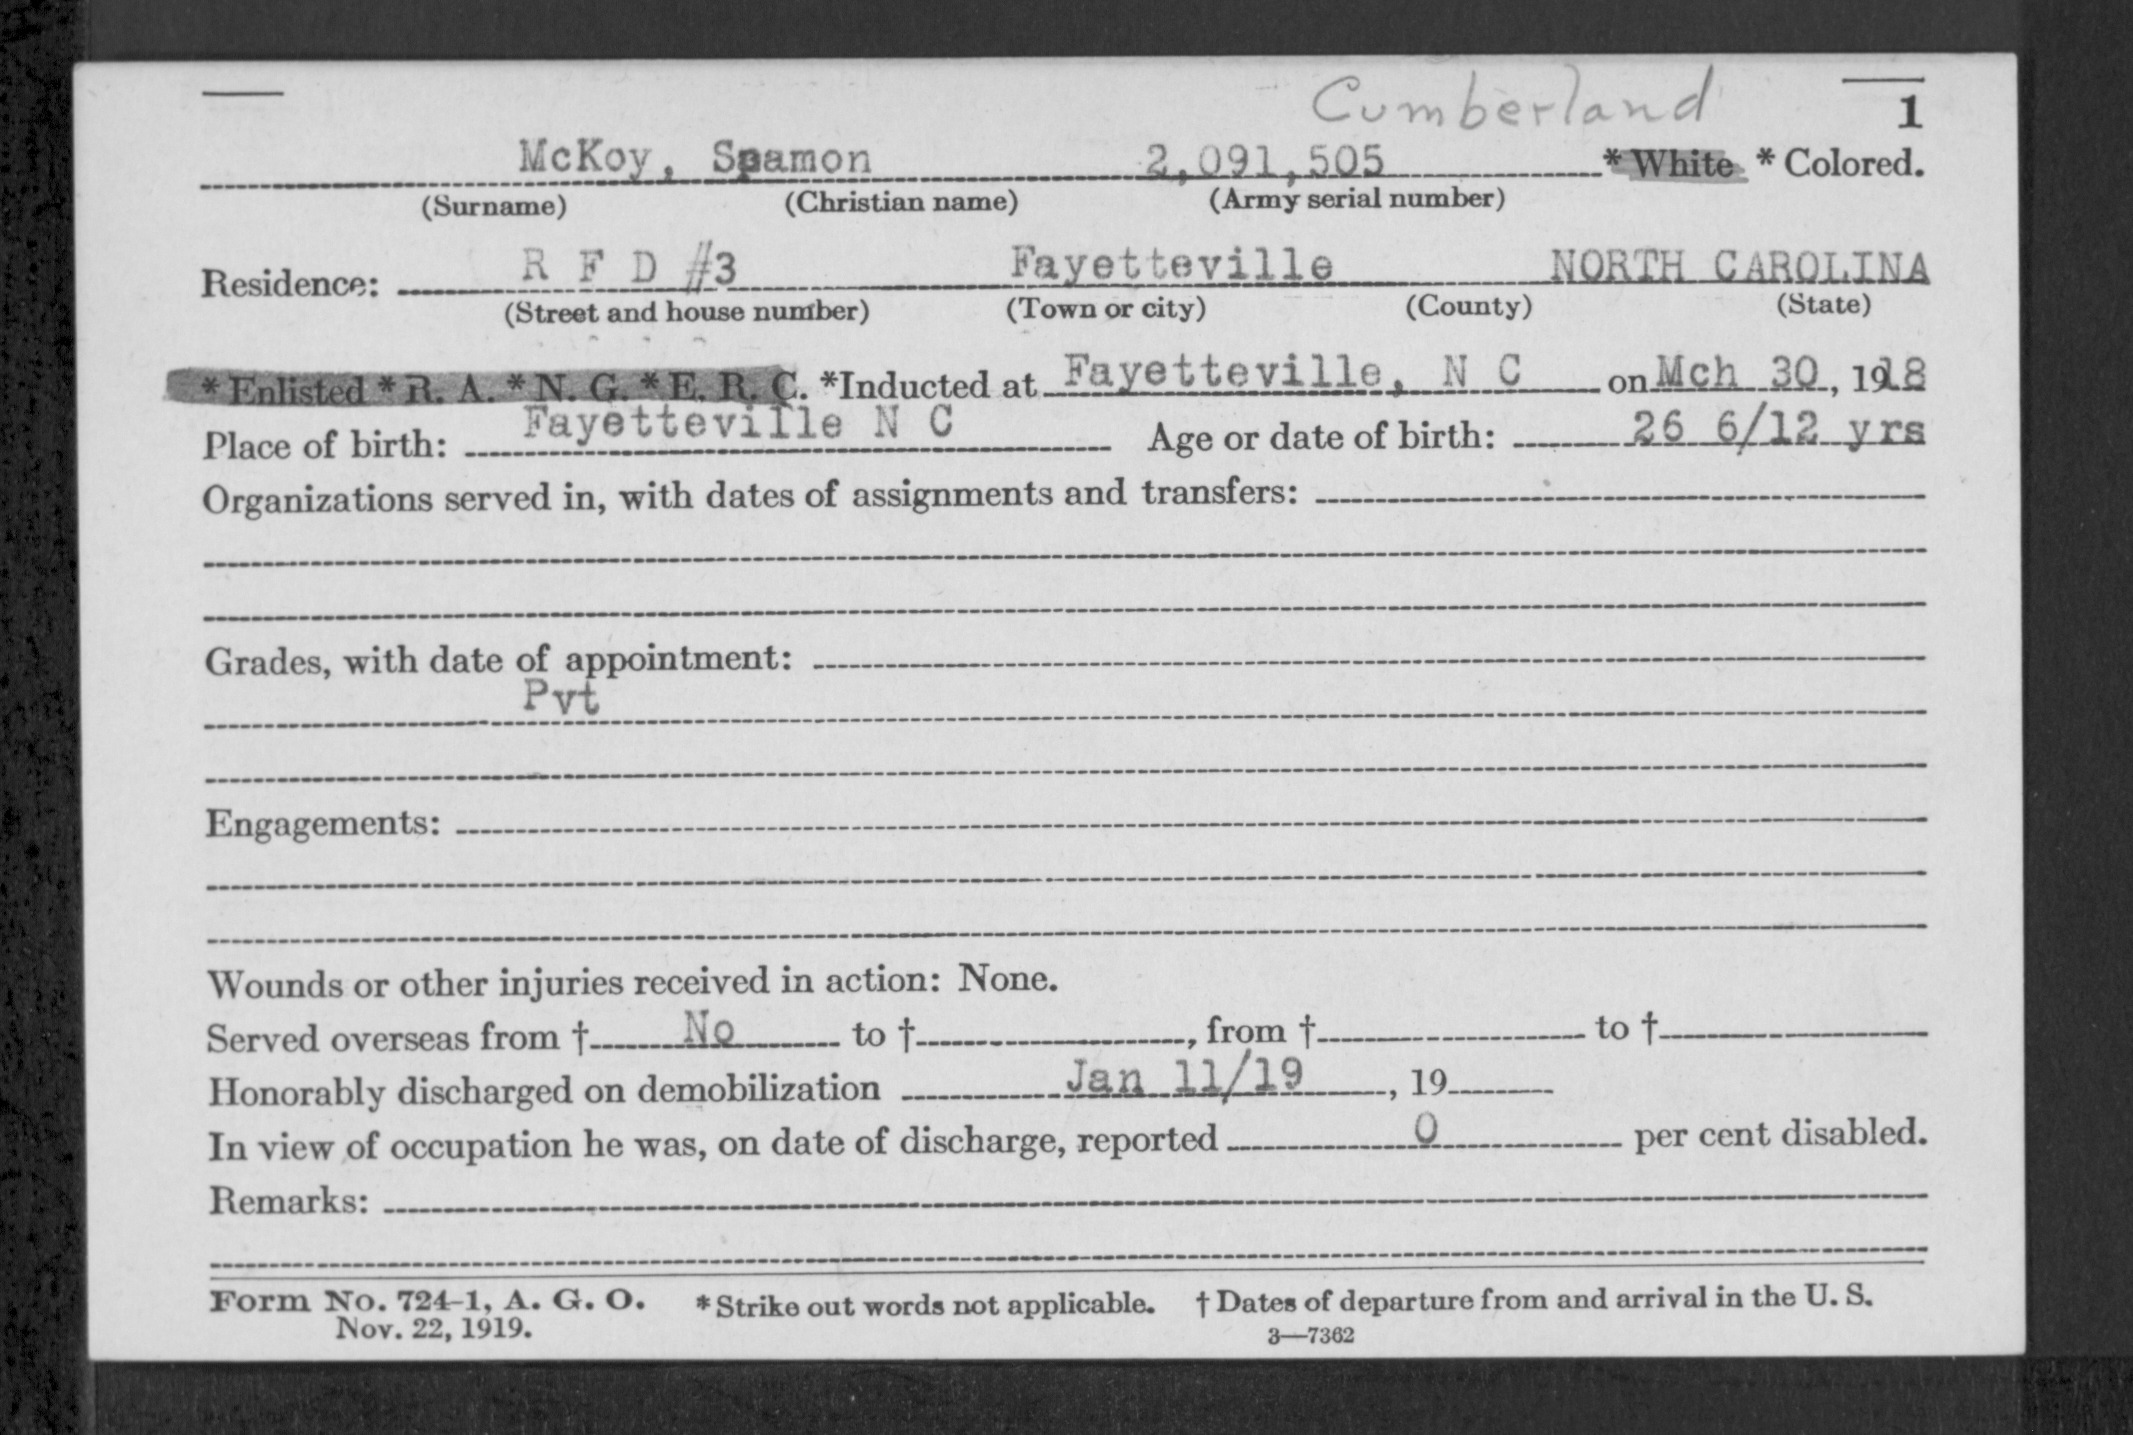 Cumberland
1
McKoy, Spamon 2,091,505 * White * Colored.
(Surname) (Christian name) (Army serial number)
Residence: R F D #3 Fayetteville NORTH CAROLINA
(Street and house number) (Town or city) (County) (State)
* Enlisted * R. A. * N. G. * E. R. C. *Inducted at Fayetteville, N C on Mch 30, 1918
Place of birth: Fayetteville N C Age or date of birth: 26 6/12 yrs
Organizations served in, with dates of assignments and transfers:
Grades, with date of appointment:
Pvt
Engagements:
Wounds or other injuries received in action: None.
Served overseas from † No to †, from † to †
Honorably discharged on demobilization Jan 11/19, 19
In view of occupation he was, on date of discharge, reported 0 per cent disabled.
Remarks:
Form No. 724-1, A. G. O. * Strike out words not applicable. † Dates of departure from and arrival in the U. S.
Nov. 22, 1919. 3—7362